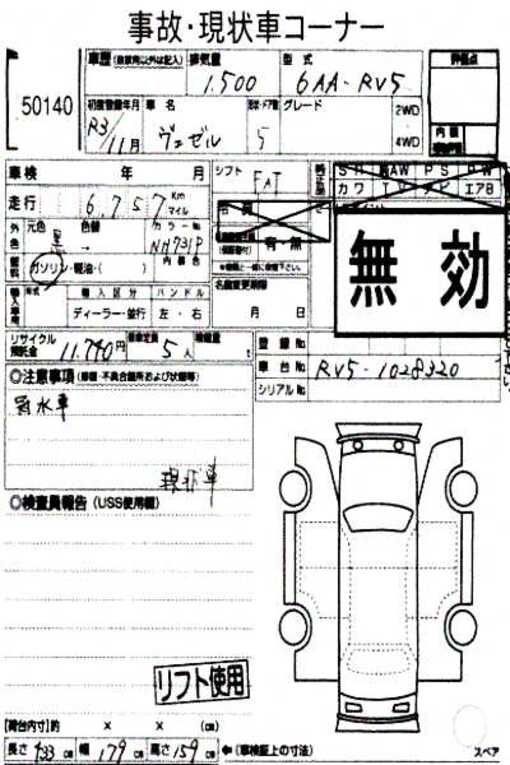 事故・現状車コーナー
50140
車歴 (自家用以外は記入) 排気量 型式 評価点
1.500 6AA-RV5
初度登録年月 車名 形状・ドア数 グレード 2WD
R3/11月 ヴェゼル 5 4WD
内装
車検 年 月 シフト FAT
走行 6757 Km マイル
SR AW PS PW
カワ TV ナビ エアB
外色 元色 色替 カラーNo
黒 → NH731P
内装色
有・無
無効
燃料 ガソリン・軽油・( )
名義変更期限
月 日
輸入車 年式 輸入区分 ハンドル
ディーラー・並行 左・右
リサイクル預託金 11.740円 乗車定員 5人 積載量 t
登録No
車台No RV5-1028320
シリアルNo
◎注意事項 (修復・不具合箇所および状態等)
冠水車
現状車
◎検査員報告 (USS使用欄)
リフト使用
[荷台内寸]約 × × (cm)
長さ 433 cm 幅 179 cm 高さ 159 cm ←(車検証上の寸法)
スペア